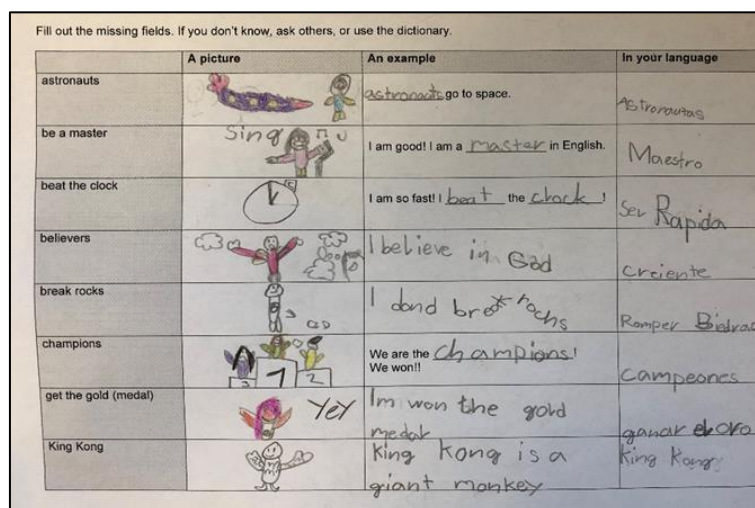 Fill out the missing fields. If you don't know, ask others, or use the dictionary.
A picture An example In your language
astronauts astronauts go to space. Astronautas
be a master Sing I am good! I am a master in English. Maestro
beat the clock I am so fast! I beat the clock! Ser Rapida
believers I believe in God Creiente
break rocks I dond break rochs Romper Biedrac
champions 3 1 2 We are the champions!
We won!! Campeones
get the gold (medal) YeY Im won the gold
medal ganar el oro
King Kong King Kong is a King Kong
giant monkey